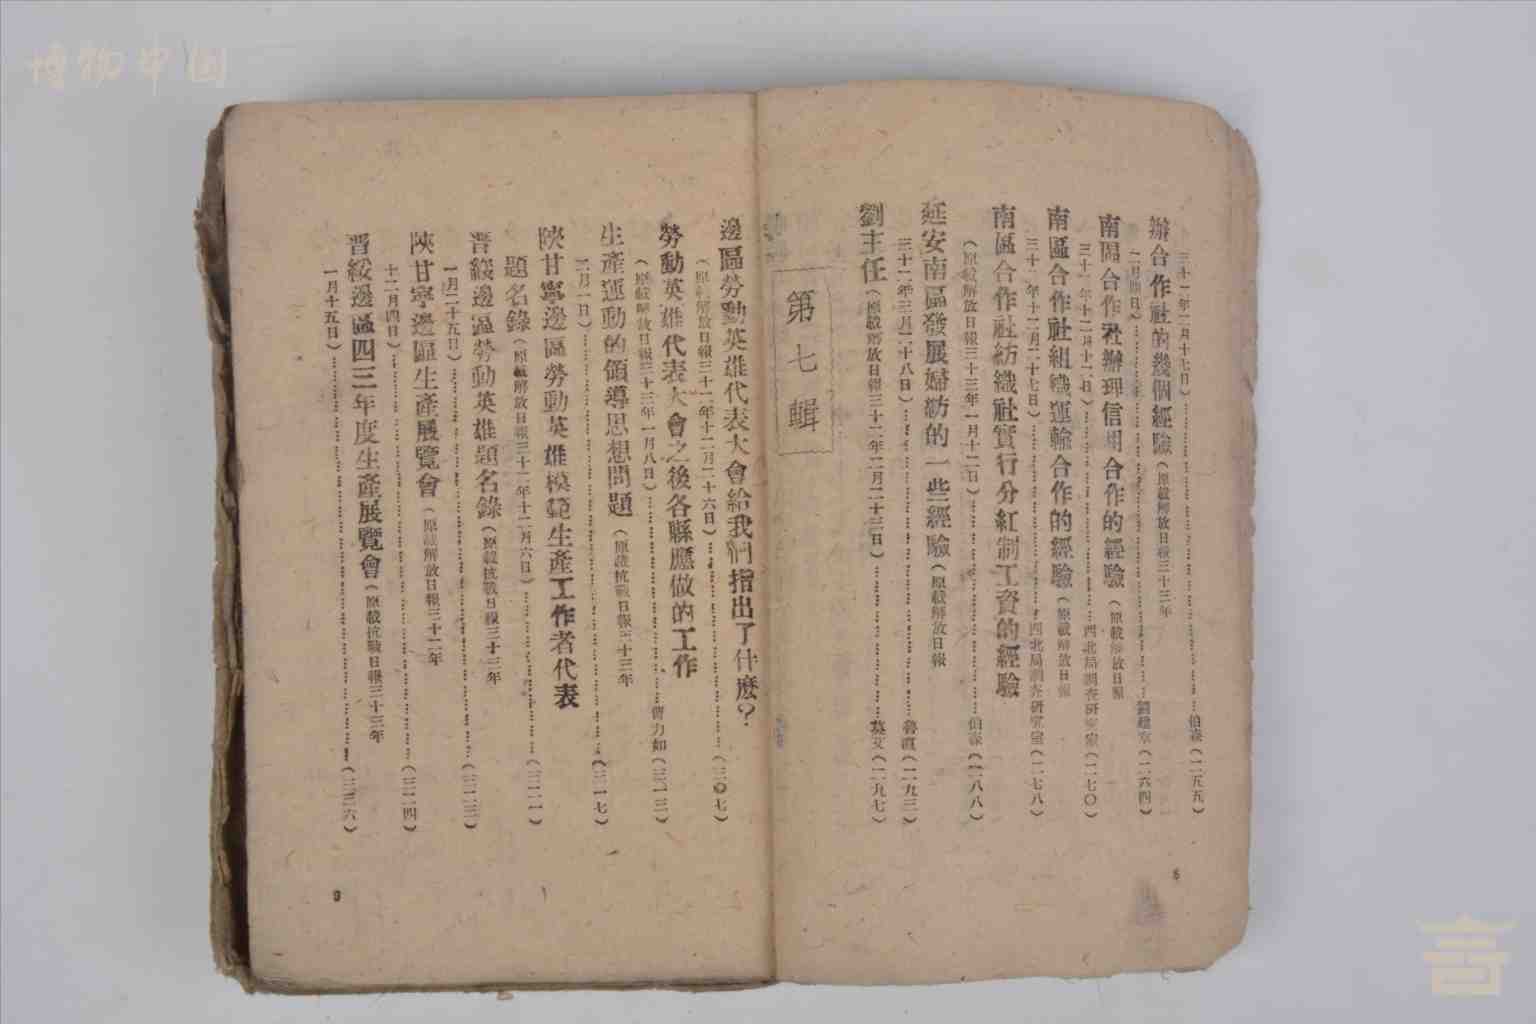 博物中国
三十二年二月十七日）……伯森（二五五）
辦合作社的幾個經驗（原載解放日報三十三年
……（二六四）
南區合作社辦理信用合作的經驗（原載解放日報
三十二年十二月十二日）……西北局調查研究室（二七〇）
南區合作社組織運輸合作的經驗（原載解放日報
三十二年十二月二十七日）……西北局調查研究室（二七八）
南區合作社紡織社實行分紅制工資的經驗
（原載解放日報三十三年一月十二日）……伯森（二八八）
延安南區發展婦紡的一些經驗（原載解放日報
三十二年三月二十八日）……魯直（二九三）
劉主任（原載解放日報三十二年二月二十三日）……莫艾（二九七）
8
第七輯
邊區勞動英雄代表大會給我們指出了什麼？
（原載解放日報三十二年十二月二十六日）……（三〇七）
勞動英雄代表大會之後各縣應做的工作
（原載解放日報三十三年一月八日）……力如（三一三）
生產運動的領導思想問題（原載抗戰日報三十三年
二月一日）……（三一七）
陝甘寧邊區勞動英雄模範生產工作者代表
題名錄（原載解放日報三十二年十二月六日）……（三二一）
晋綏邊區勞動英雄題名錄（原載抗戰日報三十三年
一月二十五日）……（三二三）
陝甘寧邊區生產展覽會（原載解放日報三十二年
十二月四日）……（三二四）
晋綏邊區四三年度生產展覽會（原載抗戰日報三十三年
一月十五日）……（三三六）
9